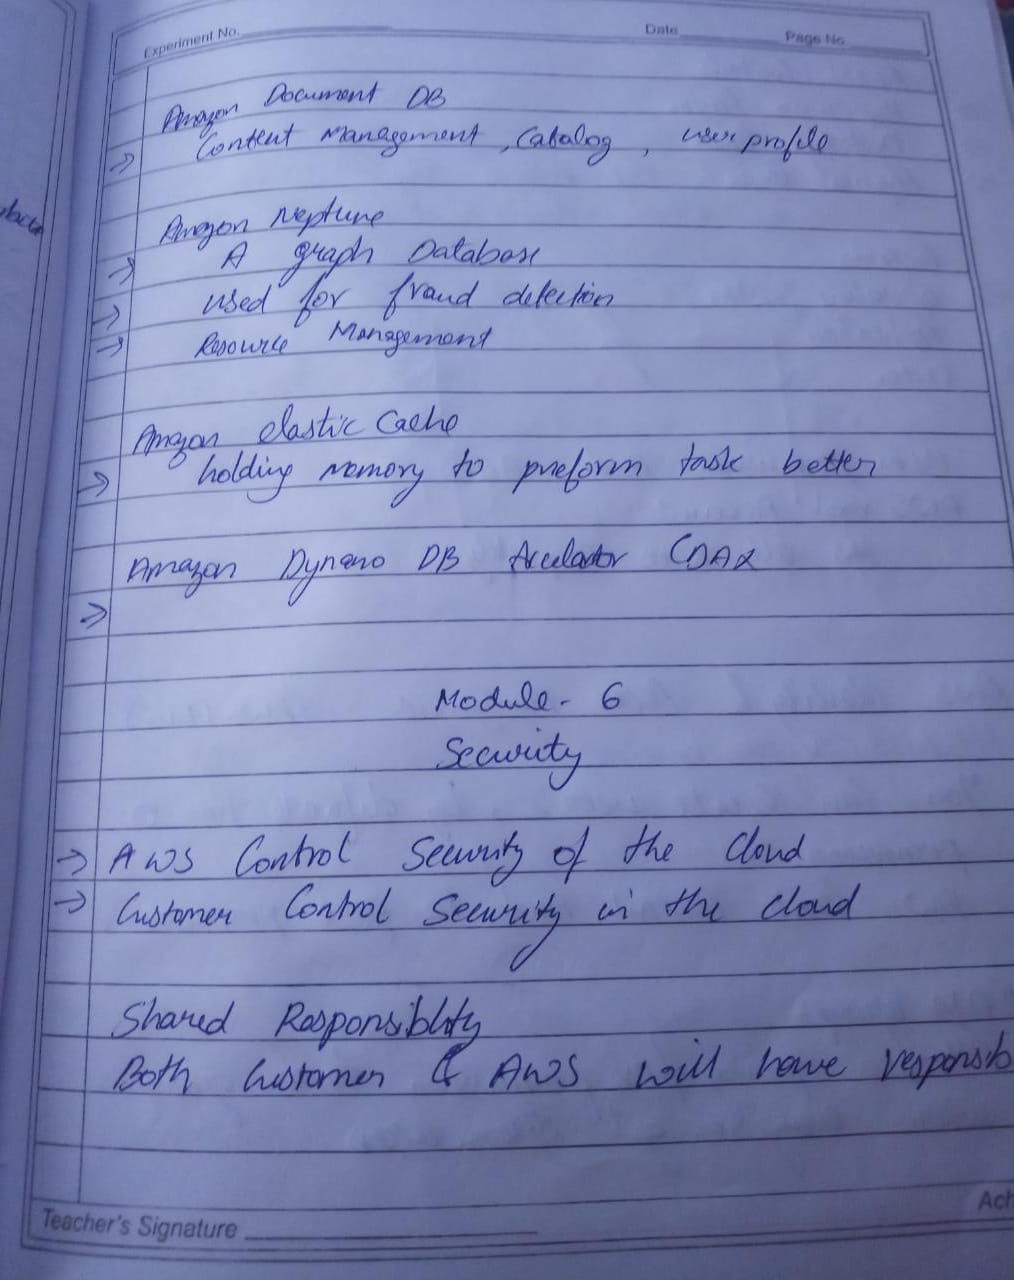 Experiment No.
Date
Page No.
Amazon Document DB
→ Content Management, Catalog, user profile
Amazon Neptune
→ A graph Database
→ used for fraud detection
→ Resource Management
Amazon elastic Cache
→ holding memory to preform task better
Amazon Dynamo DB (DAX
→
Module - 6
Security
→ AWS Control Security of the Cloud
→ Customer Control Security in the cloud
Shared Responsiblity
Both Customer & AWS will have responsib
Teacher's Signature